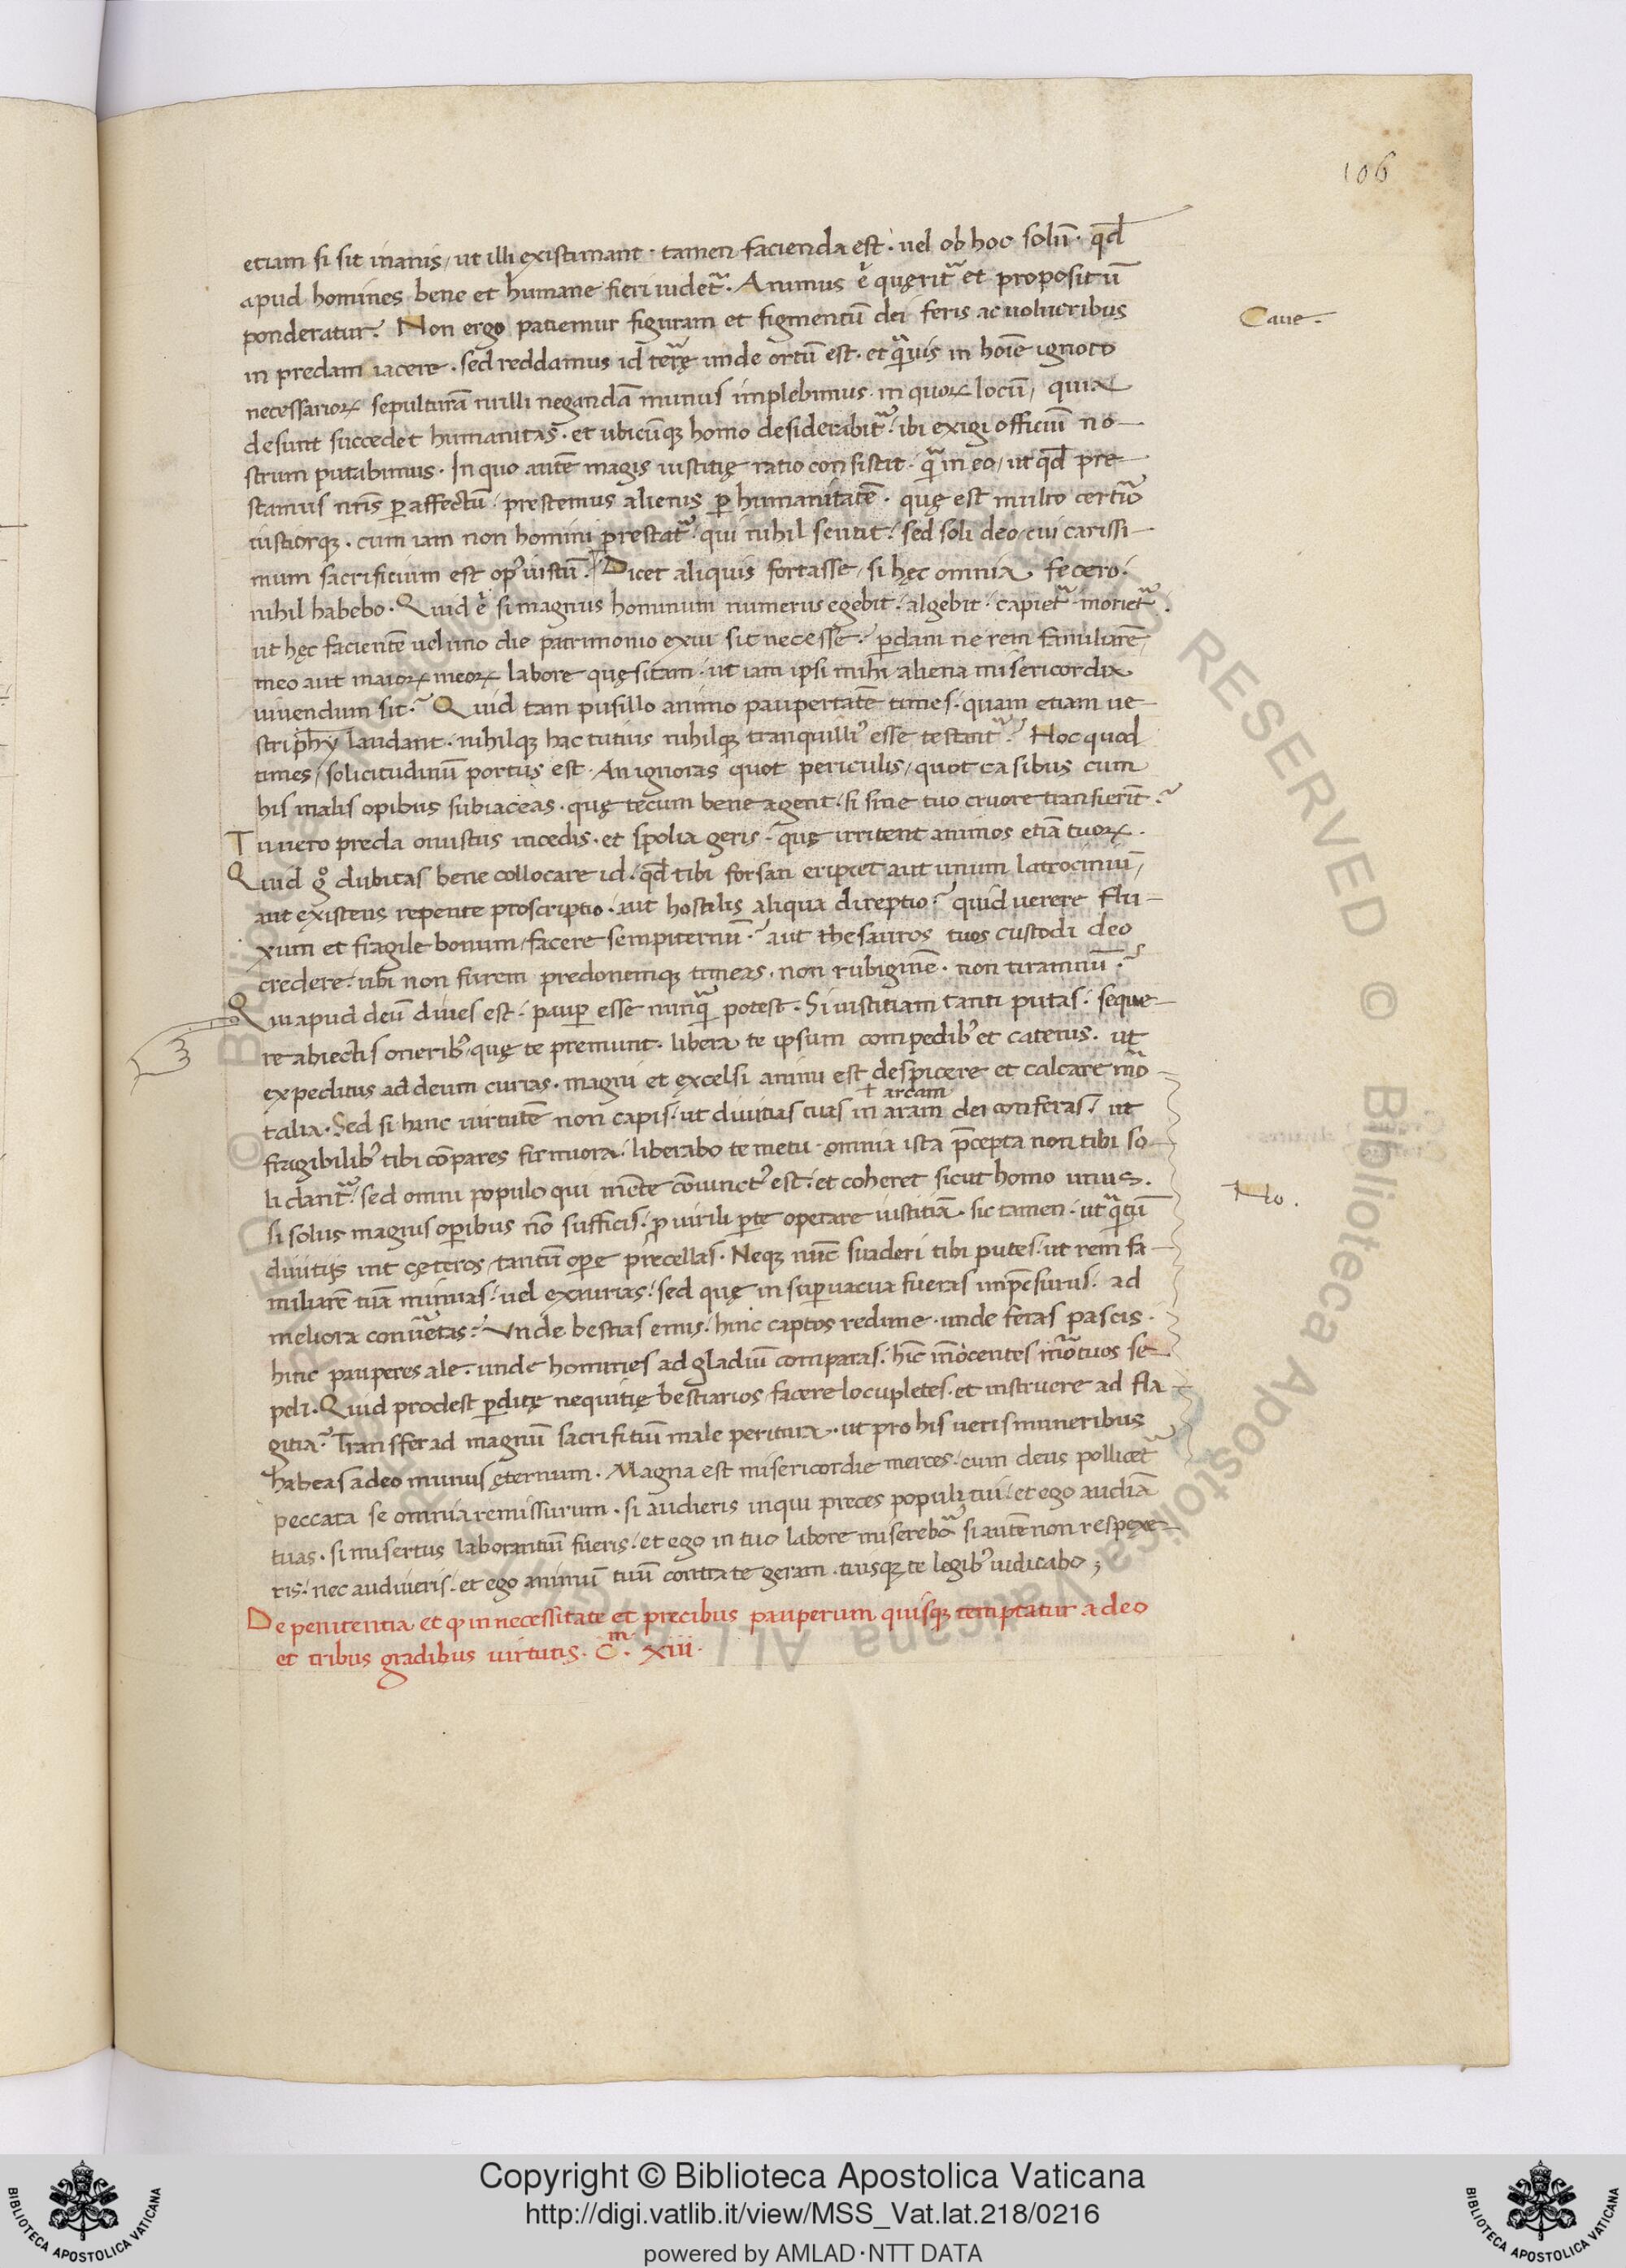 106
etiam si sit inanis, ut illi existimant · tamen facienda est · uel ob hoc solũ · qđ
apud homines bene et humane fieri uidet᷑ · Animus ẽ quęrit᷑ et propositũ
ponderatur · Non ergo patiemur figuram et figmentũ dei feris ac uolucribus
Caue ·
in predam iacere · sed reddamus id terrę unde ortũ est · et q̃uis in hoĩe ignoto
necessarioꝝ sepulturã nulli negandã munus implebimus · in quoꝝ locũ, quia
desunt succedet humanitas · et ubicũqꝫ homo desiderabit᷑ · ibi exigi officiũ no-
strum putabimus · In quo autẽ magis iustitię ratio consistit · q̃ in eo, ut qđ pre-
stamus nr̃is ꝑ affectũ · prestemus alienis ꝑ humanitatẽ · quę est multo certior
iustiorqꝫ · cum iam non homini prestat᷑ · qui nihil sentit · sed soli deo, cui carissi-
mum sacrificium est opꝰ iustũ · Dicet aliquis fortasse, si hęc omnia fecero ·
nihil habebo · Quid ẽ si magnus hominum numerus egebit · algebit · capiet᷑ · moriet᷑ ·
ut hęc facientẽ uel uno die patrimonio exui sit necesse · ꝑdam ne rem familiarẽ,
meo aut maioꝝ meoꝝ labore quęsitam · ut iam ipsi mihi aliena misericordia
uiuendum sit · Quid tam pusillo animo paupertatẽ times · quam etiam ue-
stri phy laudant · nihilqꝫ hac tutius nihilqꝫ tranquilliꝰ esse testant᷑ · Hoc quod
times, solicitudinũ portus est · An ignoras quot periculis, quot casibus cum
his malis opibus subiaceas · quę tecum bene agent · si sine tuo cruore transierint ·
Tu uero preda onustus incedis · et spolia geris · quę irritent animos etiã tuoꝝ ·
Quid gͦ dubitas bene collocare id · qđ tibi forsan eripiet aut unum latrociniũ,
aut existens repente proscriptio · aut hostilis aliqua direptio · quid uerere flu-
xum et fragile bonum, facere sempiternũ · aut thesauros tuos custodi deo
credere · ubi non furem predonemqꝫ timeas · non rubiginẽ · non tirannũ ·
Qui apud deũ diues est · pauꝑ esse nunq̃ potest · Si iustitiam tanti putas · seque-
re abiectis oneribꝰ, quę te premunt · libera te ipsum compedibꝰ et catenis · ut
expeditus ad deum curras · magni et excelsi animi est despicere et calcare mor-
+ arcam
talia · Sed si hinc uirtutẽ non capis · ut diuitias tuas in aram dei conferas · ut
fragibilibꝰ tibi cõpares firmiora · liberabo te metu · omnia ista p̃cepta non tibi so-
li dant᷑ · sed omni populo qui mẽte cõiunctꝰ est · et coheret sicut homo unus ·
No ·
Si solus magnis oꝑibus nõ sufficis · ꝓ uirili ꝑte operare iustitiã · sic tamen · ut q̃tũ
diuitijs int̃ cęteros, tantũ opere precellas · Neqꝫ nũc suaderi tibi putes · ut rem fa-
miliarẽ tuã minuas · uel exaurias · sed quę in suꝑuacua fueras impẽsurus · ad
meliora conuertas · Vnde bestias emis · hinc captos redime · unde feras pascis ·
hinc pauperes ale · unde homines ad gladiũ comparas · hĩc innocentes mortuos se-
peli · Quid prodest ꝑditę nequitię bestiarios facere locupletes · et instruere ad fla-
gitia · Transfer ad magnũ sacrifitiũ male peritura · ut pro his ueris muneribus
habeas a deo munus ęternum · Magna est misericordie merces · cum deus pollicet᷑
peccata se omnia remissurum · si audieris inqui preces populi tui · et ego audiã
tuas · si misertus laborantiũ fueris · et ego in tuo labore miserebor · si autẽ non respexe-
ris · nec audiueris · et ego animũ tuũ contra te geram · tuisqꝫ te legibꝰ iudicabo ;
De penitentia et ꝙ in necessitate et precibus pauperum quisqꝫ temptatur a deo
et tribus gradibus uirtutis · C̃m · xiii ·
Copyright © Biblioteca Apostolica Vaticana
http://digi.vatlib.it/view/MSS_Vat.lat.218/0216
powered by AMLAD·NTT DATA
BIBLIOTECA APOSTOLICA VATICANA
BIBLIOTECA APOSTOLICA VATICANA